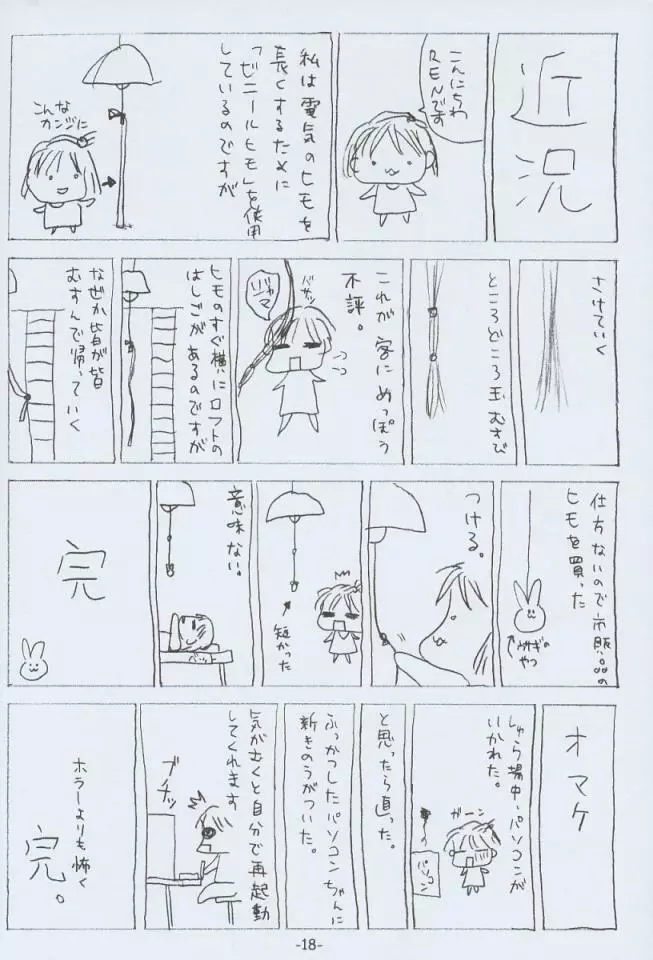 近況
こんにちわ
RENです
私は電気のヒモを
長くするために
「ビニールヒモ」を使用
しているのですが
こんな
カンジに
さけていく
ところどころ玉むすび
これが客にめっぽう
不評。
バサッ
ジャマ
ヒモのすぐ横にロフトの
はしごがあるのですが
なぜか皆が皆
むすんで帰っていく
仕方ないので市販品の
ヒモを買った
うさぎの
やつ
つける。
短かった
意味ない。
ベット
完
オマケ
しゅら場中、パソコンが
いかれた。
ガーン
パソコン
と思ったら直った。
ふっかつしたパソコンちゃんに
新きのうがついた。
気がむくと自分で再起動
してくれます
ブチッ
ホラーよりも怖く
完。
-18-